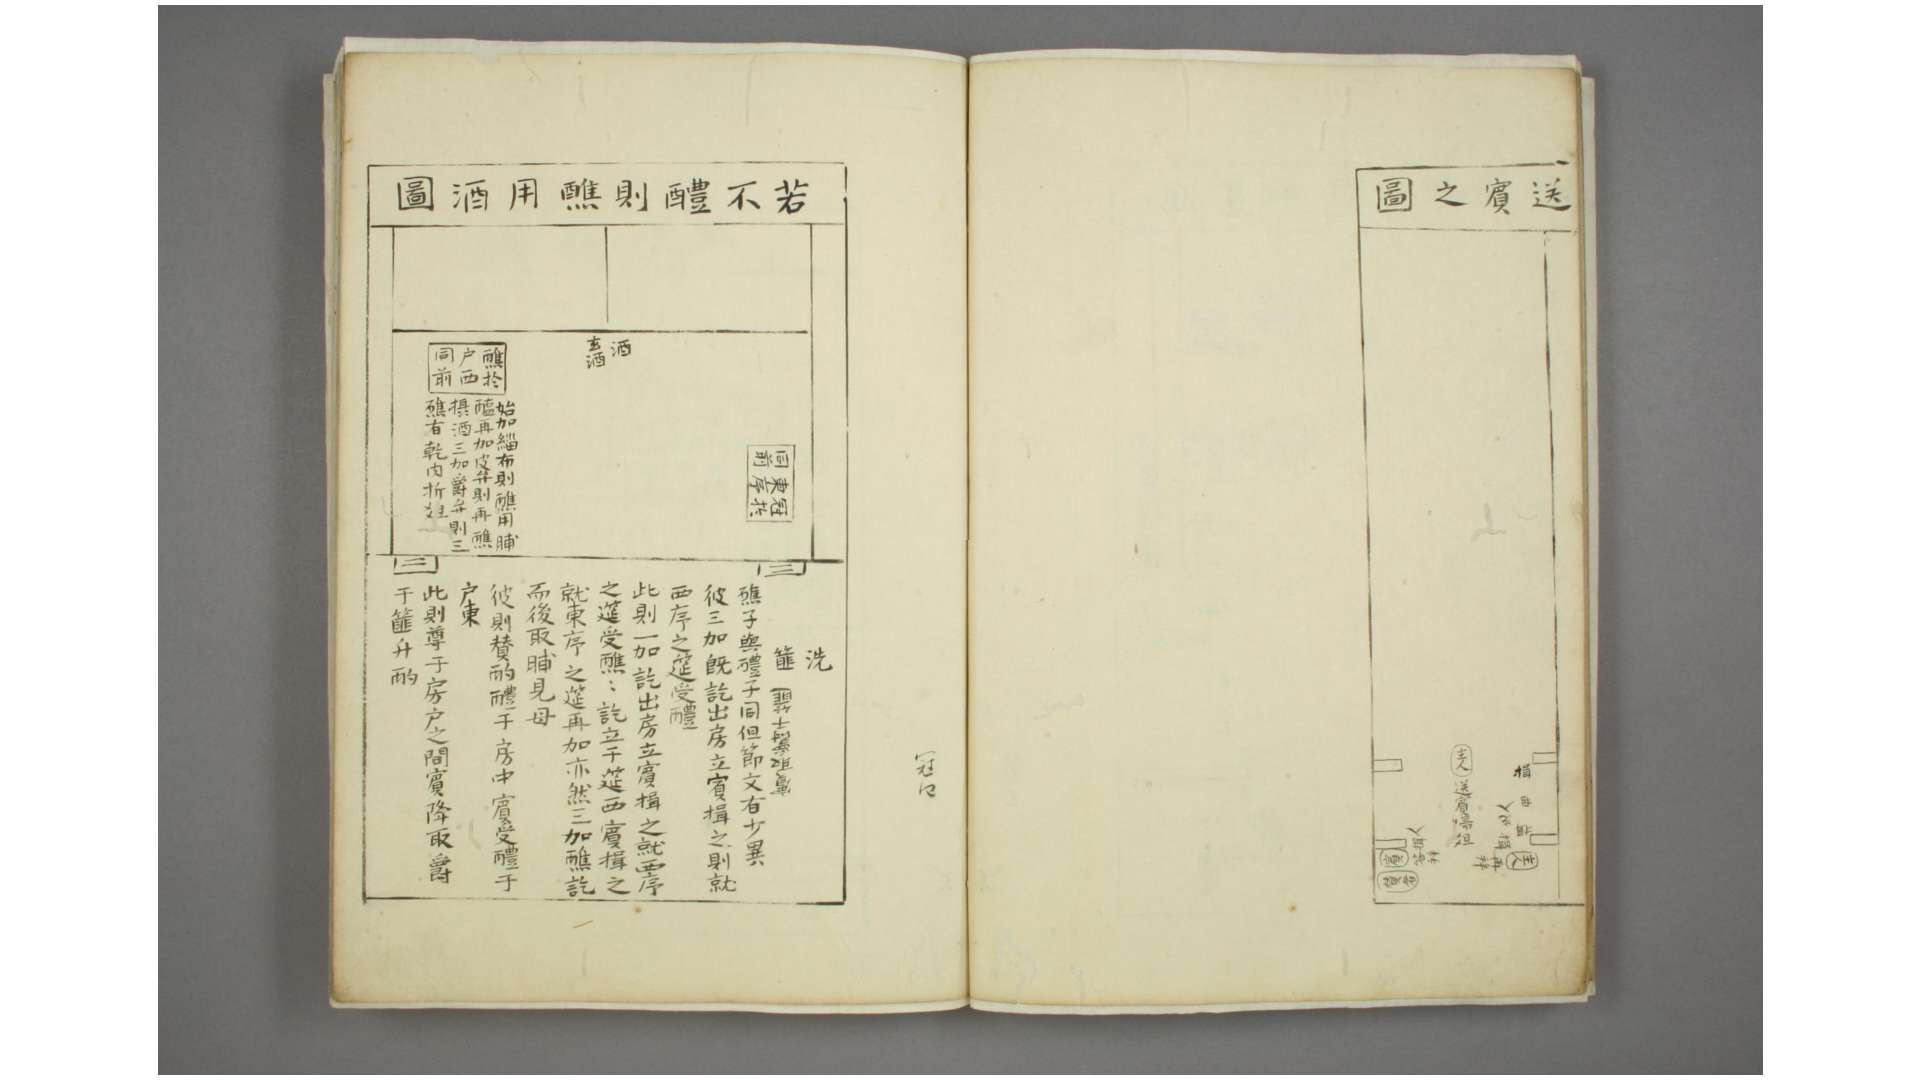 送賓之圖
揖
主人
送賓
主人
賓
冠
若不醴則醮用酒圖
酒
玄酒
冠於
東序
同前
醮於
户西
同前
始加緇布則醮用脯
醢再加皮弁則再醮
攝酒三加爵弁則三
醮有乾肉折俎
洗
篚
醮子與醴子同但節文有少異
彼三加既訖出房立賓揖之則就
西序之筵受醴
此則一加訖出房立賓揖之就西序
之筵受醮〻訖立于筵西賓揖之
就東序之筵再加亦然三加醮訖
而後取脯見母
彼則贊酌醴于房中賓受醴于
户東
此則尊于房户之間賓降取爵
于篚升酌